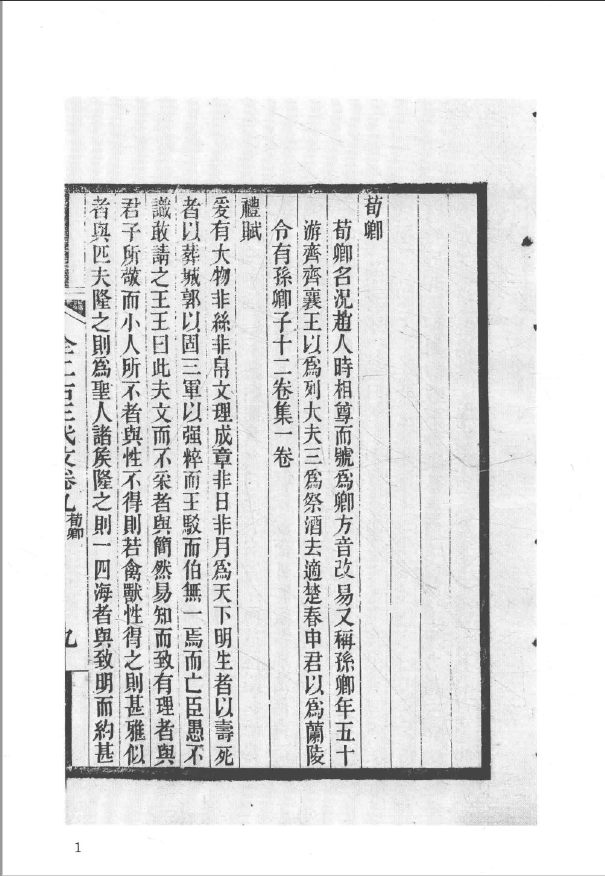 荀卿
荀卿名況趙人時相尊而號爲卿方音改易又稱孫卿年五十
游齊齊襄王以爲列大夫三爲祭酒去適楚春申君以爲蘭陵
令有孫卿子十二卷集一卷
禮賦
爰有大物非絲非帛文理成章非日非月爲天下明生者以壽死
者以葬城郭以固三軍以强粹而王駁而伯無一焉而亡臣愚不
識敢請之王王曰此夫文而不采者與簡然易知而致有理者與
君子所敬而小人所不者與性不得則若禽獸性得之則甚雅似
者與匹夫隆之則爲聖人諸矦隆之則一四海者與致明而約甚
全上古三代文卷九荀卿 九
1